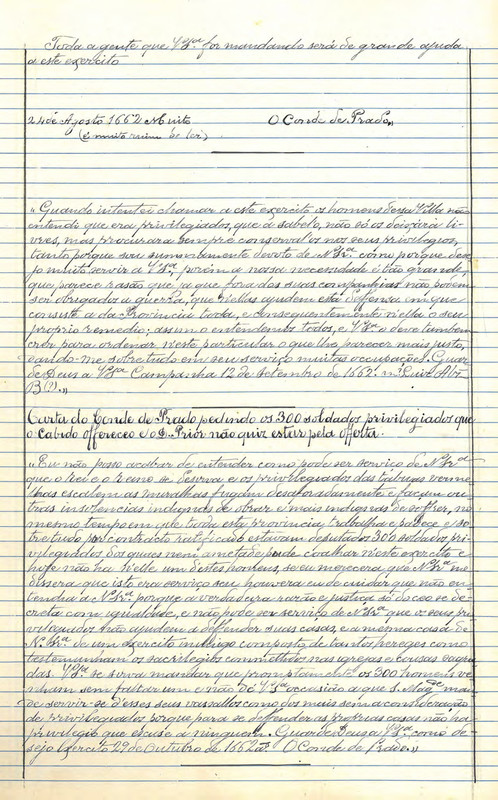 Toda a gente que V Sª. for mandando será de grande ajuda
a este exercito
24 de Agosto 1662 Muito O Conde de Prado,,
(é muito ruim de ler)
"Quando intentei chamar a este exercito os homens dessa Villa não
entendi que era privilegiados, que a sabelo, não só os deixara li-
vres, mas procurara sempre conserval os nos seus privilegios,
tanto porque sou summamente devoto de N Srª. como porque dese
jo muito servir a V Sª, porem a nossa necessidade é tão grande,
que parece rasão que, ja que fora das suas companhias não podem
ser obrigados a guerra, que n'ellas ajudem esta deffensa em que
consiste a da Provincia toda, e consequentemente n'ella o seu
proprio remedio; assim o entendemos todos, e V Sª o deve tambem
crer para ordenar neste particular o que lhe parecer mais justo,
e ando-me sobre tudo em seu serviço muitas occupações. Guar
de Deus a V Sª Campanha 12 de Setembro de 1662.
B (?),,
Carta do Conde de Prado pedindo os 300 soldados privilegiados que
o cabido offereceo e o D. Prior não quiz estar pela offerta.
"Eu não posso acabar de entender como pode ser serviço de N Srª
que o rei e o reino se deserva e os privilegiados das tabuas verme
lhas escalem as muralhas fugam desaforadamente e façam ou
tras insolencias indignas de obrar e mais indignas de soffrer, no
mesmo tempo em que toda esta provincia trabalha e padece e so
bre tudo por contracto ratificado estavam deputados 300 soldados pri
vilegiados dos quaes nem ametade pude coalhar n'este exercito e
hoje não ha n'elle um destes homens, se eu merecera que N Srª me
dissera que isto era serviço seu houvera eu de cuidar que não en-
tendia a N Srª. porque a verdadeira razão e justiça só do ceo se de
creta com igualdade, e não pode ser serviço de N Srª que os seus pri
vilegiados não ajudem a deffender suas casas, e a mesma casa de
N. Srª. de um exercito inimigo composto de tantos hereges como
testemunham os sacrilegios committidos nas igrejas e cousas sagra
das. V Sª se sirva mandar que promptamente os 300 homens ve
nham sem faltar um e não dê V Sª occasião a que S. Magde man
de servir-se d'esses seus vassallos como dos mais sem a consideração
de privilegiados porque para se defender as proprias casas não ha
privilegio que escuse a ninguem. Guarde Deus a V Sª como de
sejo Exercito 29 de Outubro de 1662 O Conde de Prado.,,